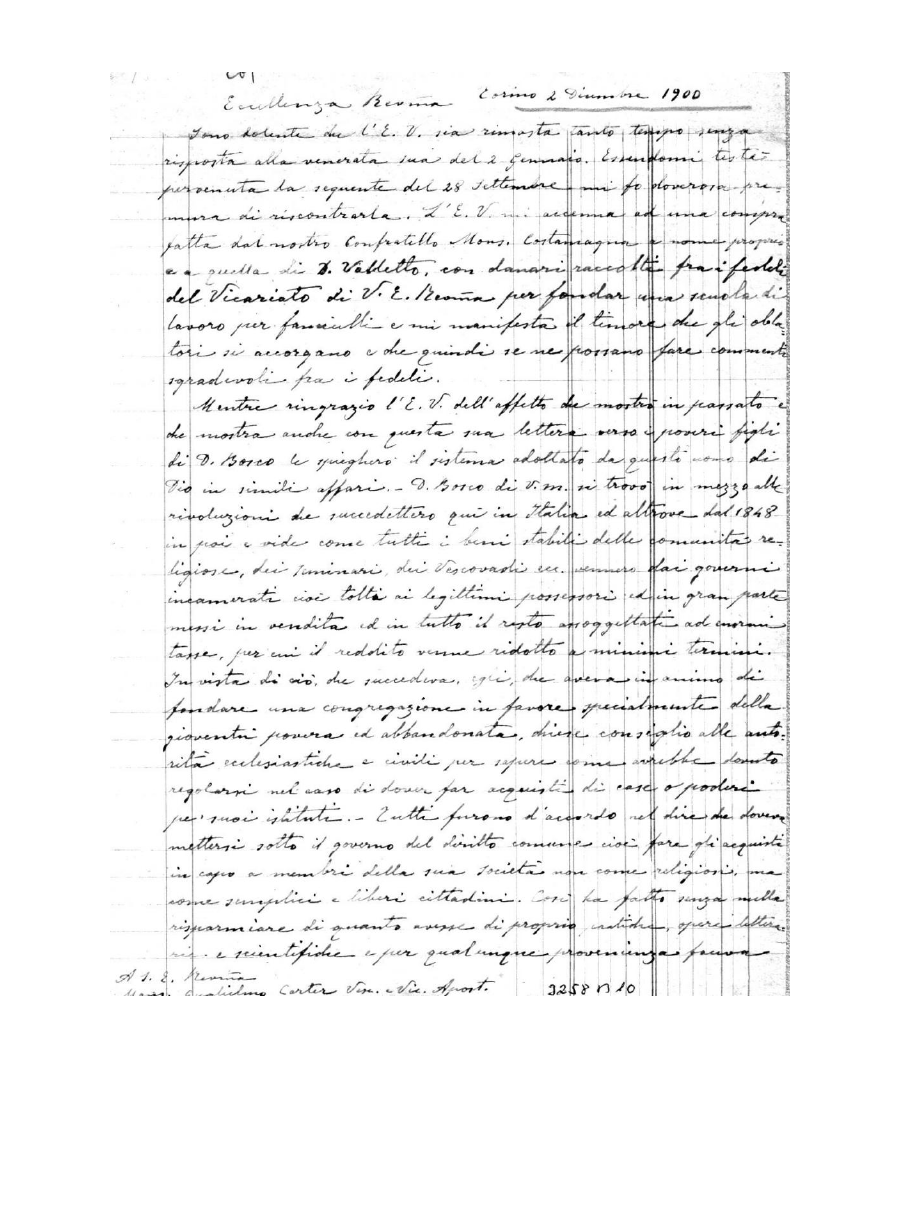 Torino 2 Dicembre 1900
Eccellenza Revma
Sono dolente che l'E. V. sia rimasta tanto tempo senza
risposta alla venerata sua del 2 Gennaio. Essendomi testè
pervenuta la seguente del 28 Settembre mi fo doverosa pre-
mura di riscontrarla. L'E. V. mi accenna ad una compra
fatta dal nostro Confratello Mons. Costamagna a nome proprio
e a quella di D. Valdetto, con danari raccolti fra i fedeli
del Vicariato di V. E. Revma per fondar una scuola di
lavoro per fanciulli e mi manifesta il timore che gli obla-
tori si accorgano e che quindi se ne possano fare commenti
sgradevoli fra i fedeli.
Mentre ringrazio l'E. V. dell'affetto che mostrò in passato e
che mostra anche con questa sua lettera verso i poveri figli
di D. Bosco le spiegherò il sistema adottato da questo uomo di
Dio in simili affari. - D. Bosco di v. m. si trovò in mezzo alle
rivoluzioni che succedettero qui in Italia ed altrove dal 1848
in poi e vide come tutti i beni stabili delle comunità re-
ligiose, dei seminari, dei Vescovadi ecc. vennero dai governi
incamerati cioè tolti ai legittimi possessori ed in gran parte
messi in vendita ed in tutto il resto assoggettati ad enormi
tasse, per cui il reddito venne ridotto a minimi termini.
In vista di ciò, che succedeva, egli, che aveva in animo di
fondare una congregazione in favore specialmente della
gioventù povera ed abbandonata, chiese consiglio alle auto-
rità ecclesiastiche e civili per sapere come avrebbe dovuto
regolarsi nel caso di dover far acquisti di case o poderi
pe' suoi istituti. - Tutti furono d'accordo nel dire che doveva
mettersi sotto il governo del diritto comune cioè fare gli acquisti
in capo a membri della sua società non come religiosi, ma
come semplici e liberi cittadini. Così ha fatto senza nulla
risparmiare di quanto avesse di proprio, opere lettera-
rie e scientifiche e per qualunque provenienza faceva
A S. E. Revma
Mons. Guglielmo Carter Vesc. e Vic. Apost.
3258 B 10